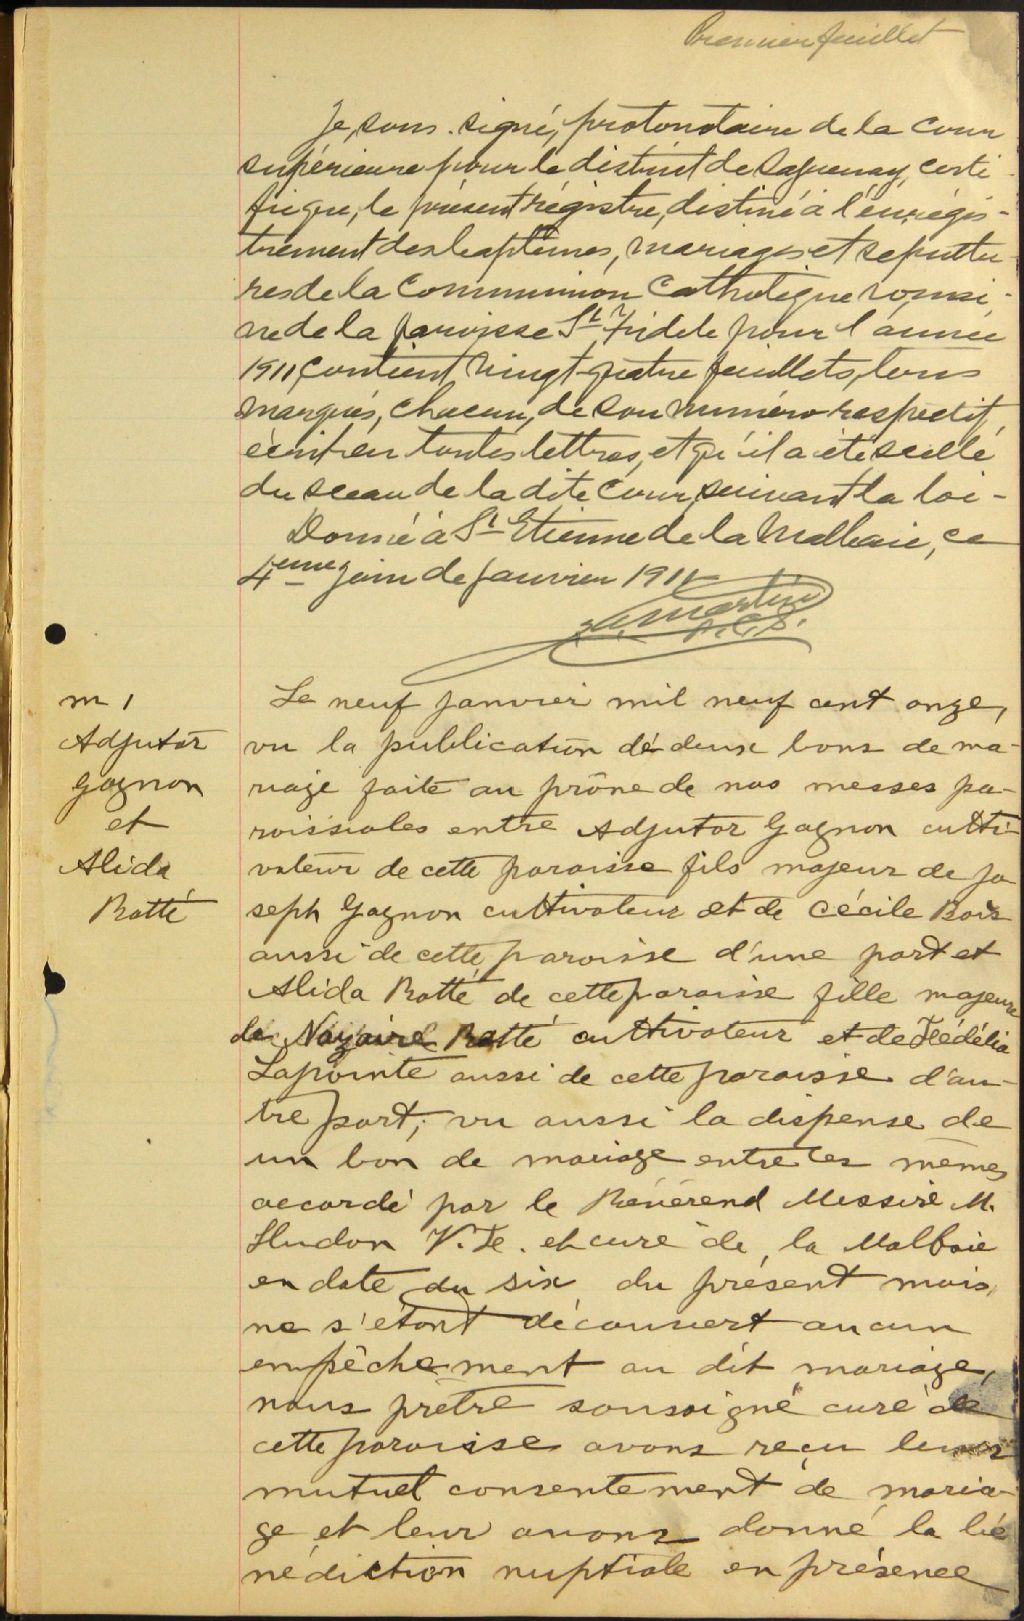 Premier feuillet
Je, sous-signé, protonotaire de la Cour
supérieure pour le district de Saguenay, certi-
fie que, le présent régistre, destiné à l'enrégis-
trement des baptêmes, mariages et sépultu-
res de la Communion Catholique romai-
ne de la paroisse St Fidele pour l'année
1911, contient vingt-quatre feuillets, tous
marqués, chacun, de son numéro respectif,
écrit en toutes lettres, et qu'il a été scellé
du sceau de la dite Cour, suivant la loi -
Donné à St Etienne de la Malbaie, ce
4eme jour de janvier 1911
Martin
P.C.S.
m 1
Adjutor
Gagnon
et
Alida
Ratté
Le neuf janvier mil neuf cent onze,
vu la publication de deux bans de ma-
riage faite au prône de nos messes pa-
roissiales entre Adjutor Gagnon culti-
vateur de cette paroisse fils majeur de Jo
seph Gagnon cultivateur et de Cécile Bois
aussi de cette paroisse d'une part et
Alida Ratté de cette paroisse fille majeure
de Nazaire Ratté cultivateur et de Fédélia
Lapointe aussi de cette paroisse d'au-
tre part; vu aussi la dispense de
un ban de mariage entre les mêmes
accordé par le Révérend Messire M.
Hudon V.F. et curé de la Malbaie
en date du six du présent mois,
ne s'étant découvert aucun
empêchement au dit mariage,
nous prêtre soussigné curé de
cette paroisse avons reçu leur
mutuel consentement de maria-
ge et leur avons donné la bé
nédiction nuptiale en présence